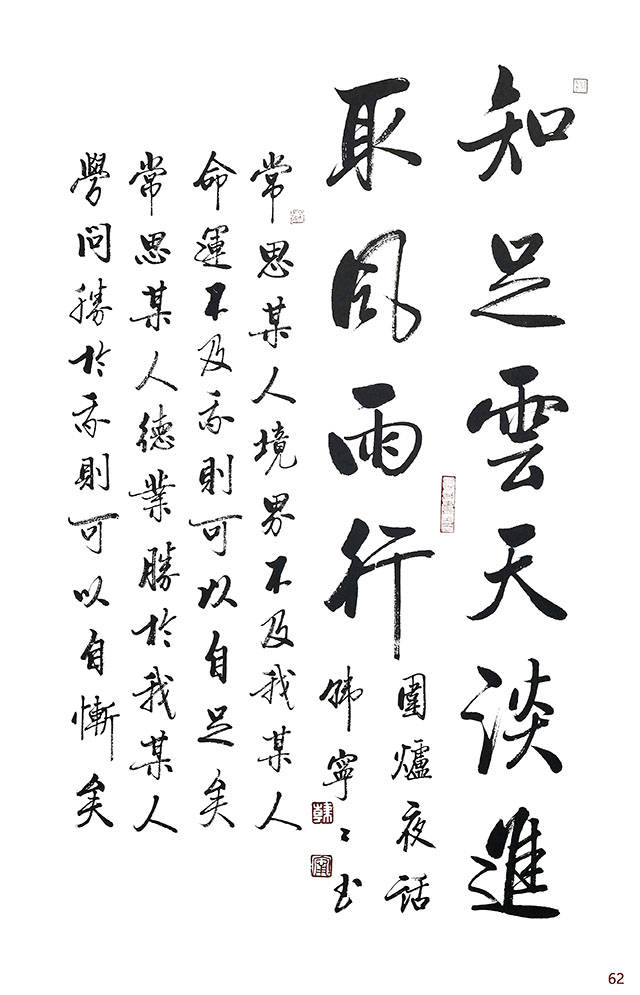 知足雲天談進
取風雨行
圍爐夜話
韩寧寧书
常思某人境界不及我某人
命運不及我則可以自足矣
常思某人德業勝於我某人
學問勝於我則可以自慚矣
62